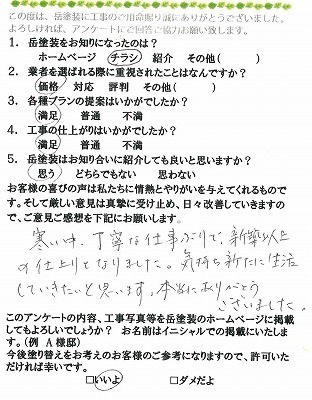 この度は、岳塗装に工事のご用命賜り誠にありがとうございました。
よろしければ、アンケートにご回答ご協力お願い致します。
1. 岳塗装をお知りになったのは?
ホームページ チラシ 紹介 その他( )
2. 業者を選ばれる際に重視されたことはなんですか?
価格 対応 評判 その他( )
3. 各種プランの提案はいかがでしたか?
満足 普通 不満
4. 工事の仕上がりはいかがでしたか?
満足 普通 不満
5. 岳塗装はお知り合いに紹介しても良いと思いますか?
思う どちらでもない 思わない
お客様の喜びの声は私たちに情熱とやりがいを与えてくれるものです。
そして厳しい意見は真摯に受け止め、日々改善していきますので、
ご意見ご感想を下記にお願いします。
寒い中、丁寧な仕事ぶりで、新築以上
の仕上りとなりました。気持ち新たに生活
していきたいと思います。本当にありがとう
ございました。
このアンケートの内容、工事写真等を岳塗装のホームページに掲載
してもよろしいでしょうか? お名前はイニシャルでの掲載にいたしま
す。(例 A様邸)
今後塗り替えをお考えのお客様のご参考になりますので、許可いた
だければ幸いです。
□いいよ □ダメだよ